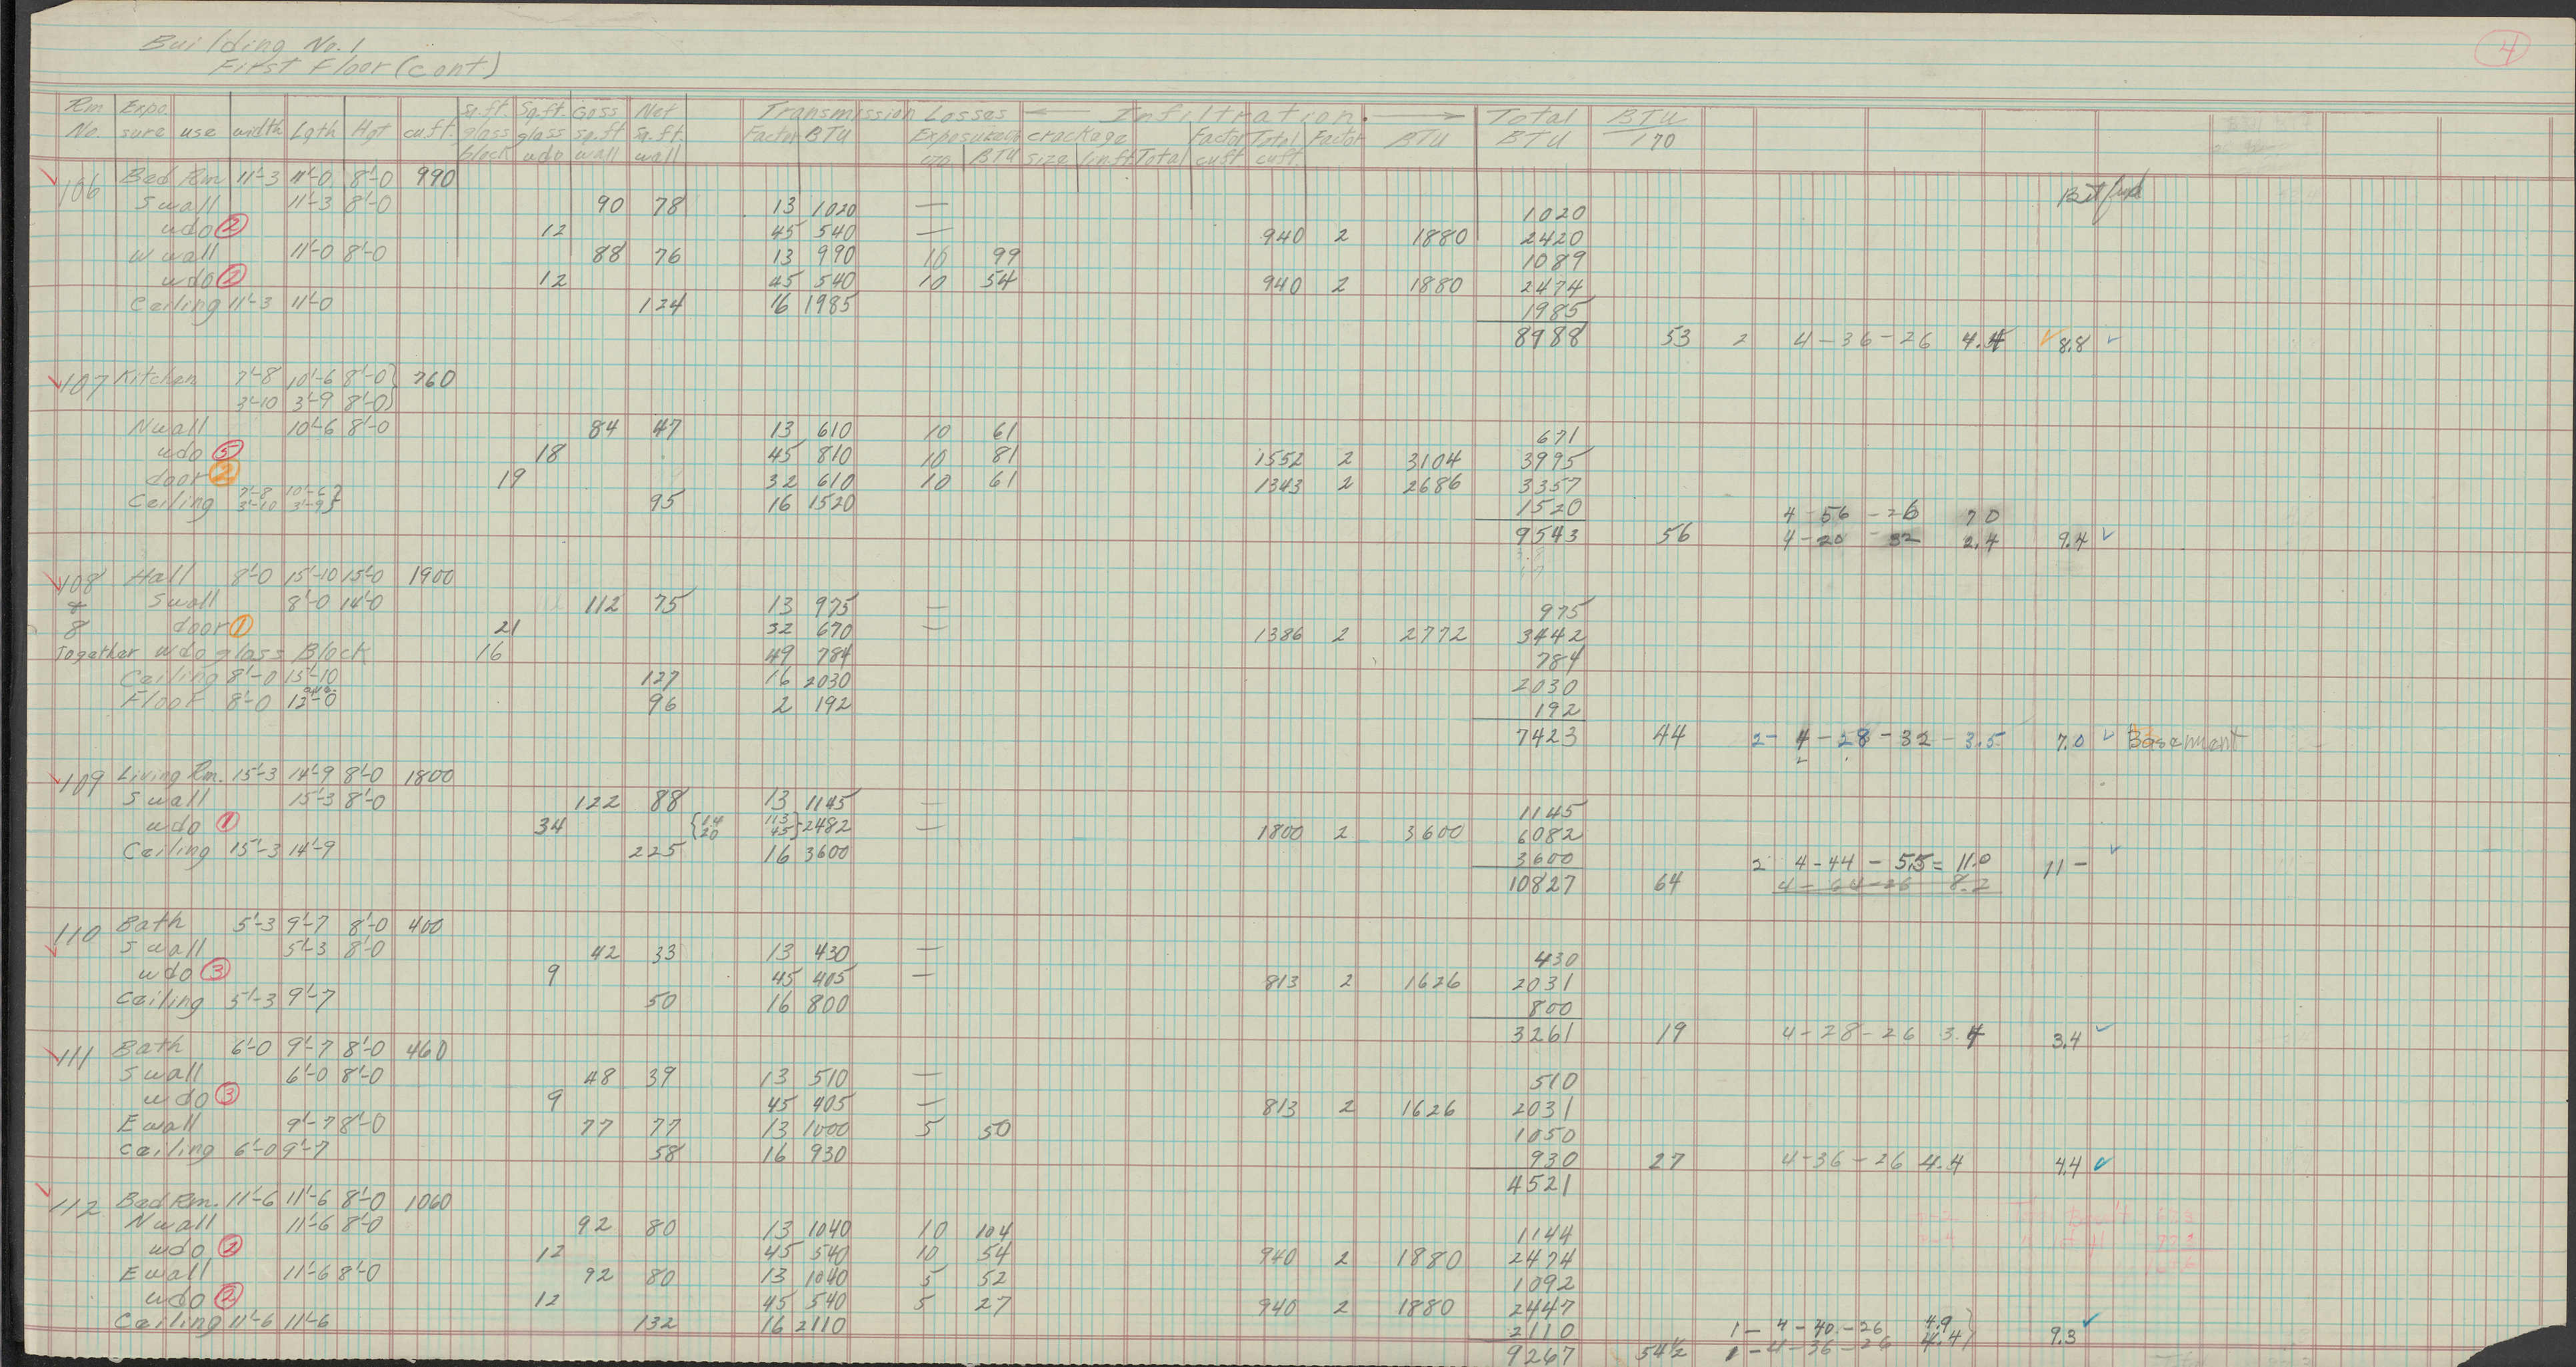 Building No. 1
First Floor (cont)
4
Rm No. Expo. sure use width Lgth Hgt cu.ft. Sq.ft. glass block Sq.ft. glass wdo Goss sq.ft wall Net sq.ft. wall Transmission Losses Factor BTU Exposure BTU ← Infiltration. → crackage size lin.ft Total Factor cuft Total cuft. Factor BTU Total BTU BTU 170
106 Bed Rm 11'-3 11'-0 8'-0 990
S wall 11'-3 8'-0 90 78 13 1020 — 1020
wdo 2 12 45 540 — 940 2 1880 2420
W wall 11'-0 8'-0 88 76 13 990 10 99 1089
wdo 2 12 45 540 10 54 940 2 1880 2474
Ceiling 11'-3 11'-0 124 16 1985 1985
8988 53 2 4-36-26 4.4 8.8
107 Kitchen 7'-8 10'-6 8'-0 } 760
3'-10 3'-9 8'-0 }
N wall 10'-6 8'-0 84 47 13 610 10 61 671
wdo 5 18 45 810 10 81 1552 2 3104 3995
door 2 19 32 610 10 61 1343 2 2686 3357
Ceiling 7'-8 10'-6 } 95 16 1520 1520
3'-10 3'-9 }
4-56-26 7.0
9543 56 4-20-32 2.4 9.4
108 Hall 8'-0 15'-10 15'-0 1900
& S wall 8'-0 14'-0 112 75 13 975 — 975
8 door 1 21 32 670 — 1386 2 2772 3442
Together wdo glass Block 16 49 784 784
Ceiling 8'-0 15'-10 127 16 2030 2030
Floor 8'-0 12'-0 96 2 192 192
7423 44 2-4-28-32-3.5 7.0 Basement
109 Living Rm. 15'-3 14'-9 8'-0 1800
S wall 15'-3 8'-0 122 88 13 1145 — 1145
wdo 1 34 { 14 20 113 45 } 2482 — 1800 2 3600 6082
Ceiling 15'-3 14'-9 225 16 3600 3600
2 4-44-5.5=11.0 11-
10827 64 4-64-26 8.2
110 Bath 5'-3 9'-7 8'-0 400
S wall 5'-3 8'-0 42 33 13 430 — 430
wdo 3 9 45 405 — 813 2 1626 2031
Ceiling 5'-3 9'-7 50 16 800 800
3261 19 4-28-26 3.4 3.4
111 Bath 6'-0 9'-7 8'-0 460
S wall 6'-0 8'-0 48 39 13 510 — 510
wdo 3 9 45 405 — 813 2 1626 2031
E wall 9'-7 8'-0 77 77 13 1000 5 50 1050
Ceiling 6'-0 9'-7 58 16 930 930 27 4-36-26 4.4 4.4
4521
112 Bed Rm. 11'-6 11'-6 8'-0 1060
N wall 11'-6 8'-0 92 80 13 1040 10 104 1144
wdo 2 12 45 540 10 54 940 2 1880 2474
E wall 11'-6 8'-0 92 80 13 1040 5 52 1092
wdo 2 12 45 540 5 27 940 2 1880 2447
Ceiling 11'-6 11'-6 132 16 2110 2110
1-4-40-26 4.9 } 9.3
9267 54½ 1-4-36-26 4.4 }